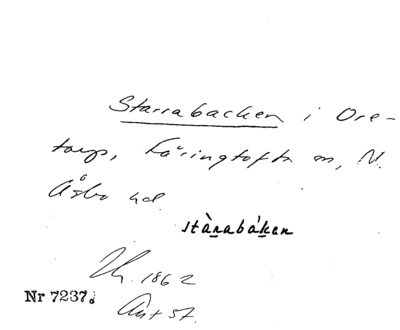 Starrabacken i Ore-
torp, Färingtofta sn, N.
Åsbo hd.
stàrabáken
1862
Nr 7237.
Ant 57.